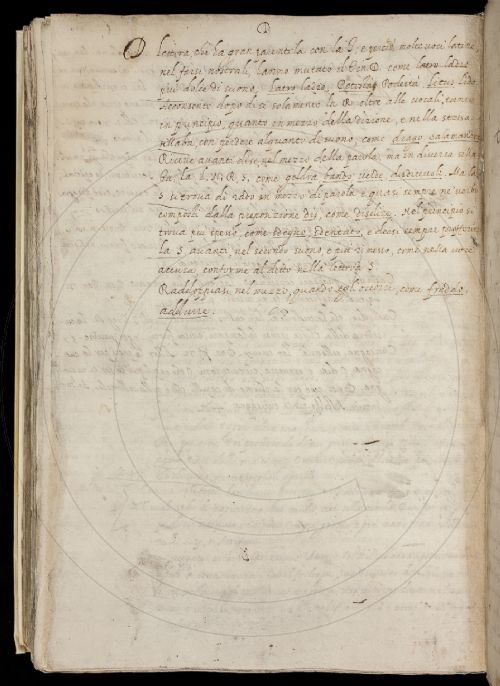 D
D lettera, che ha gran parentela con la T, e perciò molte voci latine,
nel farsi nostrali, hanno mutato il T in D. come latro ladro
più dolce di suono, Latro ladro, Potestas Podestà Litus Lido.
Riceve dopo di se solamente la R oltre alle vocali, tanto
in principio, quanto in mezzo della dizione, e nella stessa
sillaba, con perdere alquanto di suono, come drago calamandra
Riceve avanti di se nel mezzo della parola, ma in diversa silla
ba, la L, N, R, S, come geldra bando verde, disdicevoli. Ma la
S si trova di rado in mezzo di parola e quasi sempre ne verbi
composti dalla preposizione dis, come disdire. Nel principio si
trova più spesso come sdegno, sdentato, e deesi sempre profferire
la S avanti, nel secondo suono, e più rimesso, come nella voce
accusa, conforme al detto nella lettera S.
Raddoppiasi nel mezzo, quando egli occorre, come freddo,
addurre.